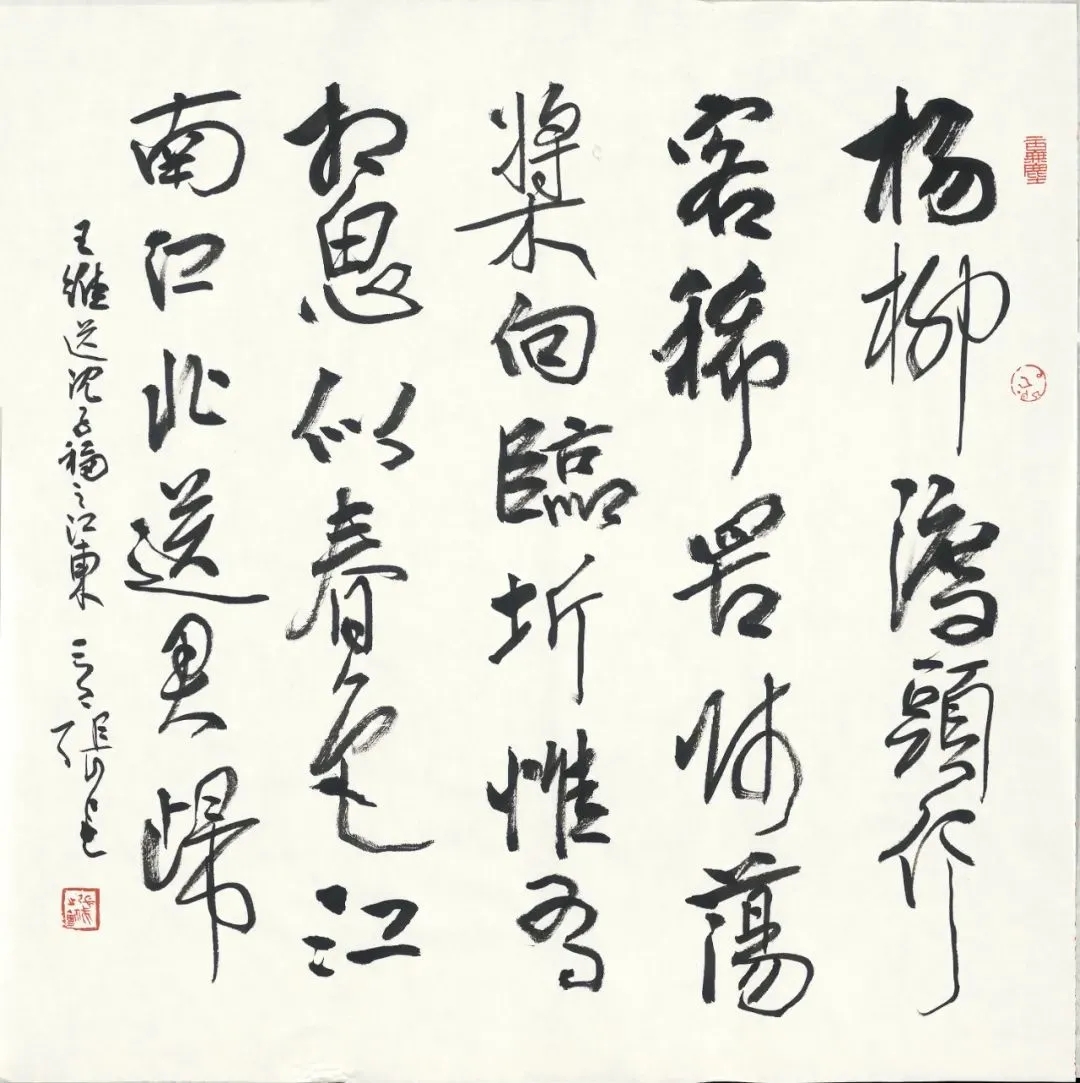 楊柳渡頭行
客稀罟師蕩
槳向臨圻惟有
相思似春色江
南江北送君歸
王維送沈子福之江東 張